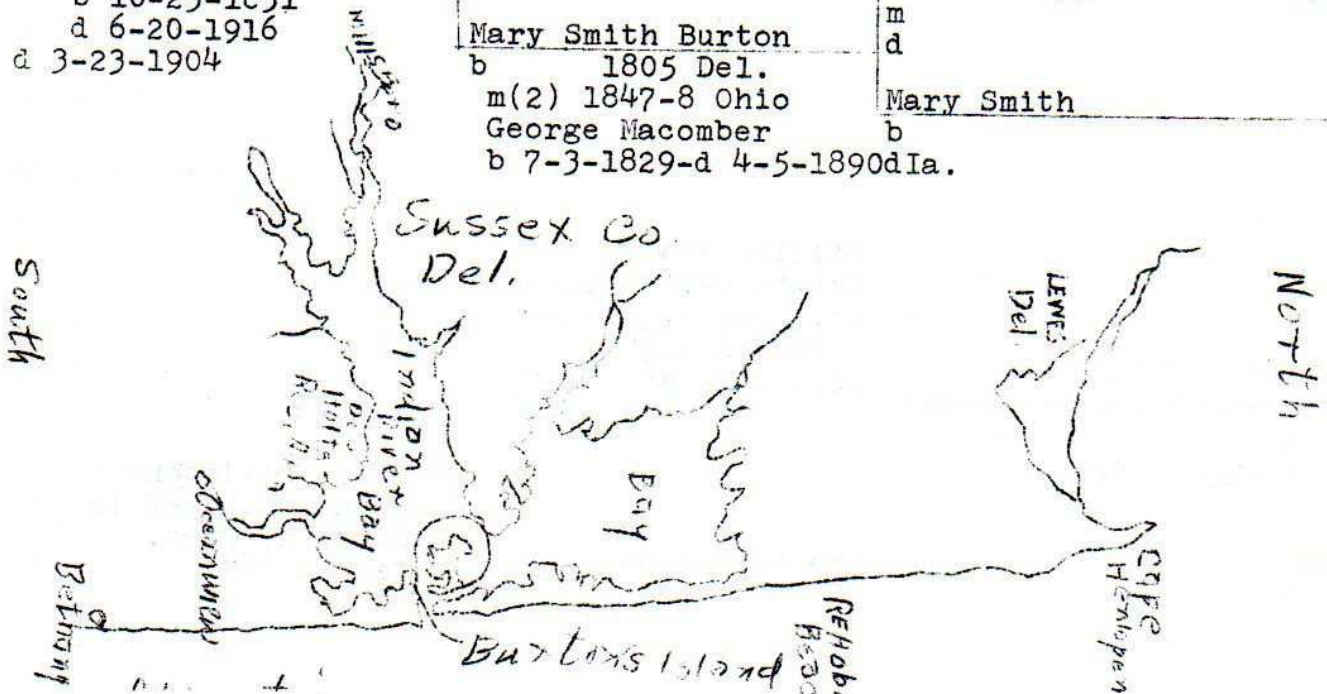 b 10-25-1851
d 6-20-1916
d 3-23-1904
Mary Smith Burton
b 1805 Del.
m(2) 1847-8 Ohio
George Macomber
b 7-3-1829-d 4-5-1890dIa.
m
d
Mary Smith
b
Millsboro
Sussex Co.
Del.
South
LEWES
Del.
North
Indian
River
Bay
Holts
Bay
Oceanview
Bethany
Burton's Island
REHOB
Cape
Henlopen